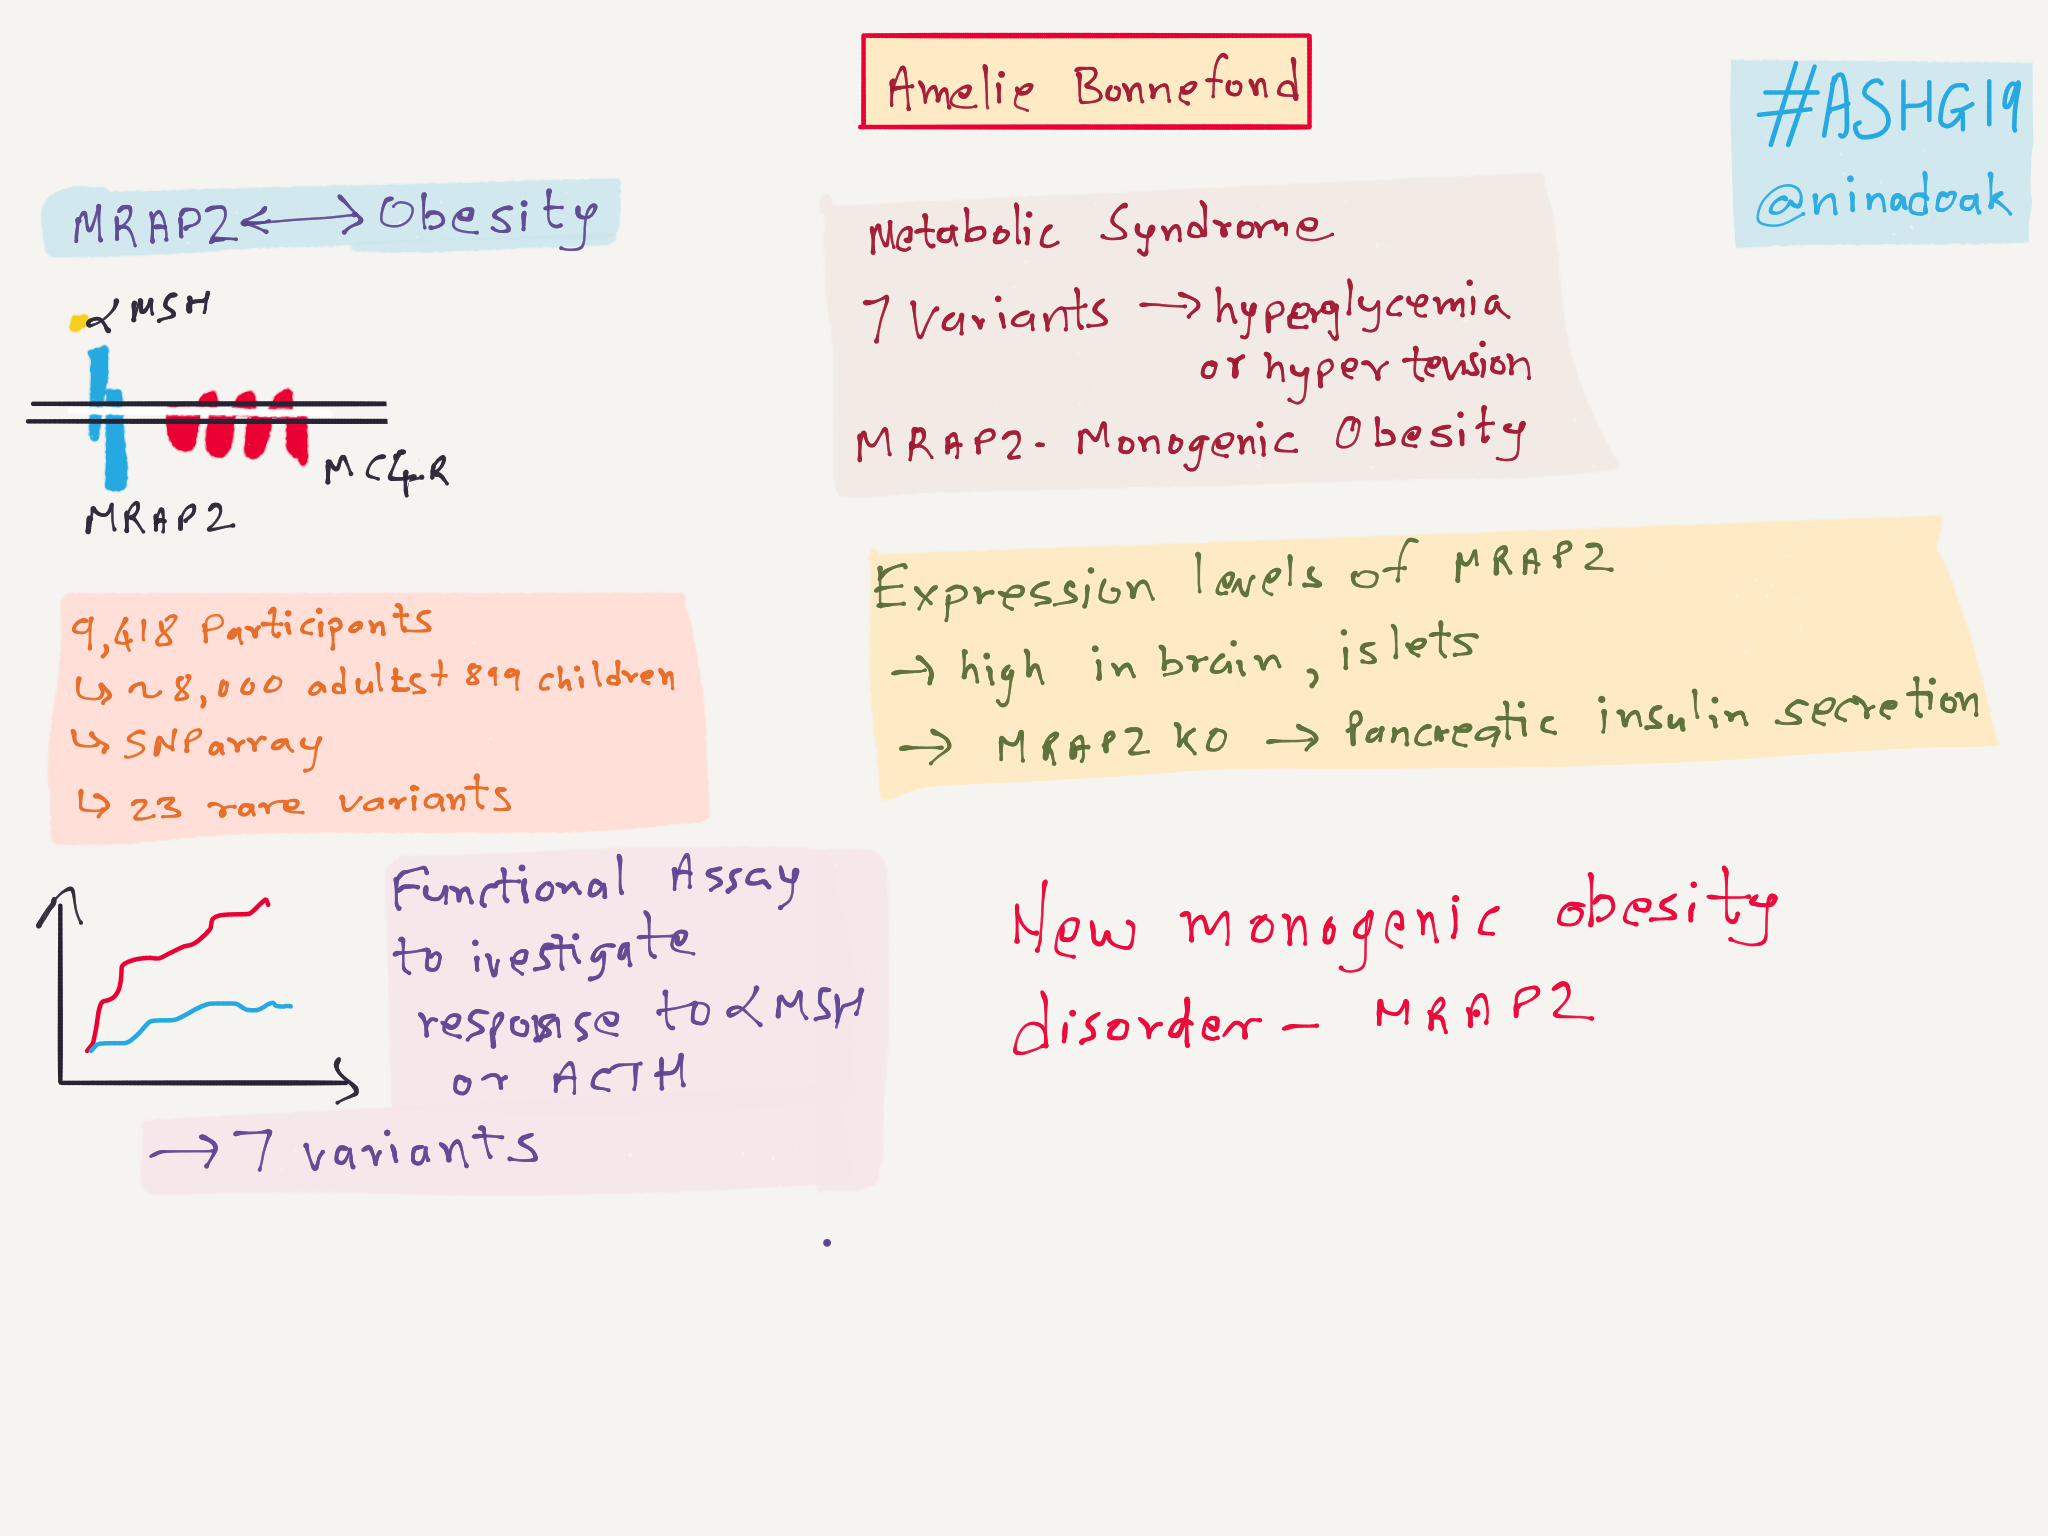 Amelie Bonnefond
#ASHG19
@ninadoak
MRAP2 ↔ Obesity
αMSH
MC4R
MRAP2
9,418 Participants
↳ ~8,000 adults + 899 children
↳ SNParray
↳ 23 rare variants
Functional Assay
to ivestigate
response to αMSH
or ACTH
→ 7 variants
Metabolic Syndrome
7 Variants → hyperglycemia
or hypertension
MRAP2 - Monogenic Obesity
Expression levels of MRAP2
→ high in brain, islets
→ MRAP2 KO → Pancreatic insulin secretion
New monogenic obesity
disorder - MRAP2